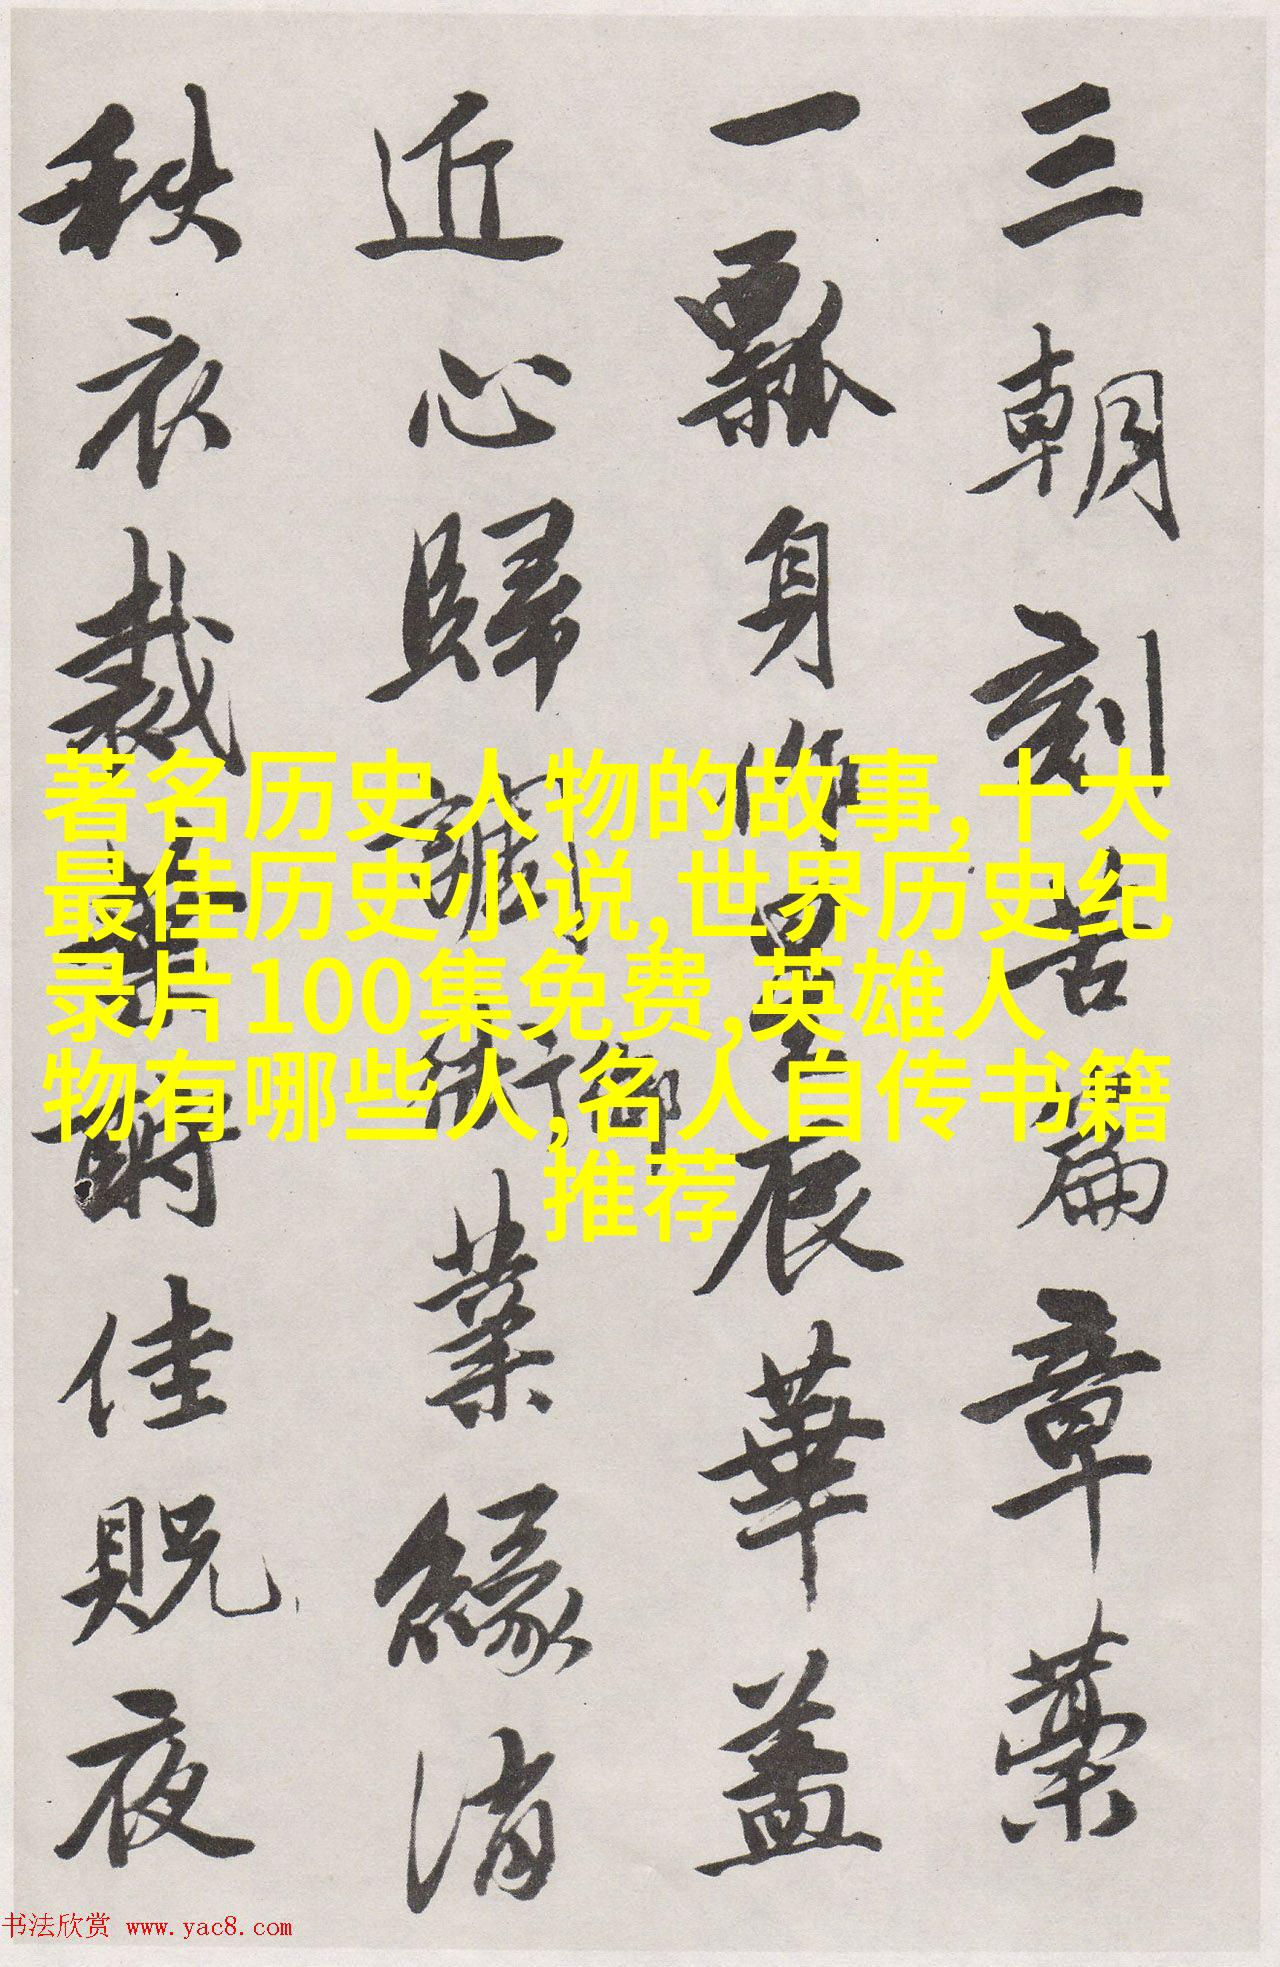 三朝刻苦篇章藁
一瓢身作星辰華盖
近心歸衛御業緣消
秩衣裁酬佳貺夜
著名历史人物的故事,十大
最佳历史小说,世界历史纪
录片100集免费,英雄人
物有哪些人,名人自传书籍
推荐
书法欣赏 www.yac8.com